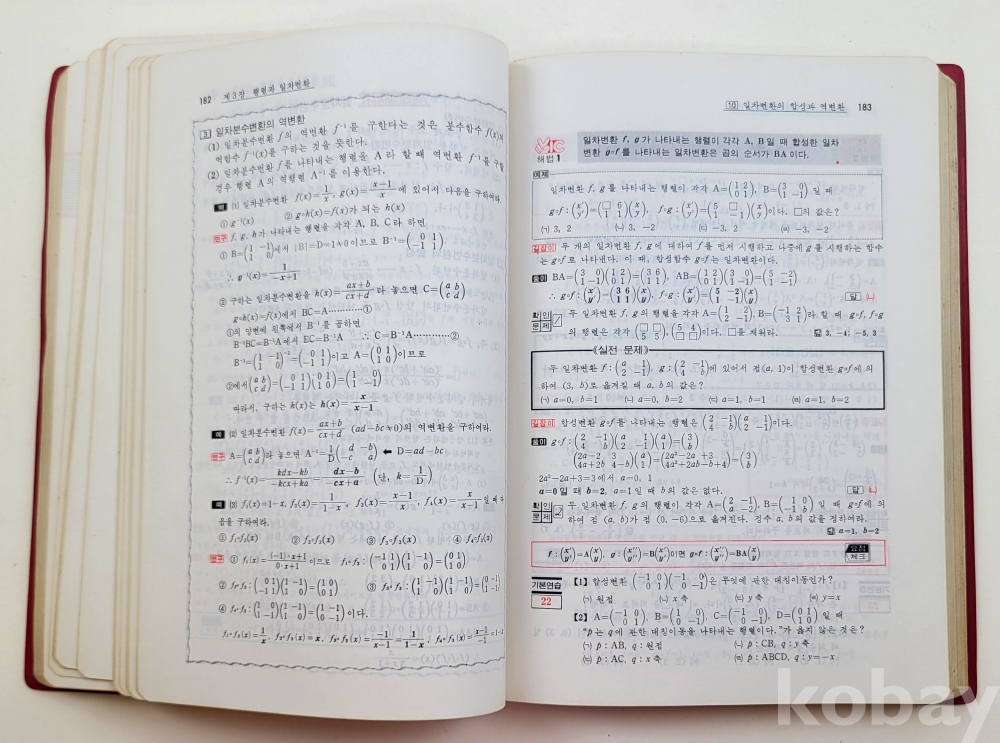 182 제3장 행렬과 일차변환
3 일차분수변환의 역변환
(1) 일차분수변환 f의 역변환 f⁻¹를 구한다는 것은 분수함수 f(x)의
역함수 f⁻¹(x)를 구하라는 것을 뜻한다.
(2) 일차분수변환 f를 나타내는 행렬을 A라 할 때 역변환 f⁻¹를 구할
경우 행렬 A의 역행렬 A⁻¹를 이용한다.
예 (1) 일차분수변환 f(x)=1/x, g(x)=(x-1)/x 에 있어서 다음을 구하여라.
① g⁻¹(x) ② g∘h(x)=f(x)가 되는 h(x)
연구 f, g, h가 나타내는 행렬을 각각 A, B, C라 하면
① B=(1 -1 / 1 0)에서 |B|=D=1≠0이므로 B⁻¹=(0 1 / -1 1)
∴ g⁻¹(x)=1/(-x+1)
② 구하는 일차분수변환을 h(x)=(ax+b)/(cx+d)라 놓으면 C=(a b / c d)
g∘h(x)=f(x)에서 BC=A…………①
①의 양변에 왼쪽에서 B⁻¹를 곱하면
B⁻¹BC=B⁻¹A에서 EC=B⁻¹A ∴ C=B⁻¹A…………②
B⁻¹=(1 -1 / 1 0)⁻¹=(0 1 / -1 1)이고 A=(0 1 / 1 0)이므로
②에서(a b / c d)=(0 1 / -1 1)(0 1 / 1 0)=(1 0 / 1 -1)
따라서, 구하는 h(x)는 h(x)=x/(x-1)
예 (2) 일차분수변환 f(x)=(ax+b)/(cx+d) (ad-bc≠0)의 역변환을 구하여라.
연구 A=(a b / c d)라 놓으면 A⁻¹=1/D(d -b / -c a) ⬅ D=ad-bc
∴ f⁻¹(x)=(kdx-kb)/(-kcx+ka)=(dx-b)/(-cx+a) (단, k=1/D)
예 (3) f₁(x)=1-x, f₂(x)=1/(1-x), f₃(x)=(x-1)/x, f₄(x)=x/(x-1)일 때 다
음을 구하여라.
① f₁∘f₂(x) ② f₂∘f₃(x) ③ f₃∘f₂(x) ④ f₄∘f₃(x)
연구 ① f₁(x)=((-1)·x+1)/(0·x+1)이므로 f₁∘f₃:(-1 1 / 0 1)(1 -1 / 1 0)=(0 1 / 1 0)
183
10 일차변환의 합성과 역변환
해법 1
일차변환 f, g가 나타내는 행렬이 각각 A, B일 때 합성한 일차
변환 g∘f를 나타내는 일차변환은 곱의 순서가 BA이다.
예제
일차변환 f, g를 나타내는 행렬이 각각 A=(1 2 / 0 1), B=(3 0 / 1 -1)일 때
g∘f:(x′ / y′)=(□ 6 / 1 1)(x / y), f∘g:(x′ / y′)=(5 □ / 1 -1)(x / y)이다. □의 값은?
(ㄱ) 3, 2 (ㄴ) 3, -2 (ㄷ) -3, 2 (ㄹ) -3, -2
길잡이 두 개의 일차변환 f, g에 대하여 f를 먼저 시행하고 나중에 g를 시행하는 함수
는 g∘f로 나타낸다. 이 때, 합성함수 g∘f는 일차변환이다.
풀이 BA=(3 0 / 1 -1)(1 2 / 0 1)=(3 6 / 1 1), AB=(1 2 / 0 1)(3 0 / 1 -1)=(5 -2 / 1 -1)
∴ g∘f:(x / y)→(3 6 / 1 1)(x / y), f∘g:(x / y)→(5 -2 / 1 -1)(x / y) 답 ㄴ
확인문제 두 일차변환 f, g의 행렬을 각각 A=(1 2 / 2 -1), B=(-1 2 / 3 1)라 할 때 g∘f, f∘g
의 행렬은 각각 (□ □ / 5 5), (5 4 / □ □)이다. □를 채워라. 답 3, -4; -5, 3
《실전 문제》
두 일차변환 f:(a -1 / 2 -2), g:(2 -1 / 4 b)에 있어서 점(a, 1)이 합성변환 g∘f에 의
하여 (3, b)로 옮겨질 때 a, b의 값은?
(ㄱ) a=0, b=1 (ㄴ) a=0, b=2 (ㄷ) a=1, b=1 (ㄹ) a=1, b=2
길잡이 합성변환 g∘f를 나타내는 행렬은 (2 -1 / 4 b)(a -1 / 2 -2)이다.
풀이 g∘f:(2 -1 / 4 b)(a -1 / 2 -2)(a / 1)=(3 / b)
(2a-2 3... / 4a+2b ...)(a / 1)=(2a²-2a+3 / 4a²+2ab-b+4)=(3 / b)
2a²-2a+3=3에서 a=0, 1
a=0일 때 b=2, a=1일 때 b의 값은 없다. 답 ㄴ
확인문제 두 일차변환 f, g의 행렬이 각각 A=(2 -1 / a -2), B=(1 0 / -1 b)일 때 g∘f에 의
하여 점 (a, b)가 점 (0, -6)으로 옮겨진다. 정수 a, b의 값을 정하여라.
답 a=1, b=2
f:(x′ / y′)=A(x / y), g:(x″ / y″)=B(x′ / y′)이면 g∘f:(x″ / y″)=BA(x / y) 요점체크
기본연습 22
【1】 합성변환 (-1 0 / 0 1)(-1 0 / 0 -1)은 무엇에 관한 대칭이동인가?
(ㄱ) 원점 (ㄴ) x축 (ㄷ) y축 (ㄹ) y=x
【2】 A=(-1 0 / 0 1), B=(1 0 / 0 -1), C=(-1 0 / 0 -1), D=(0 1 / 1 0)일 때
"p는 q에 관한 대칭이동을 나타내는 행렬이다."가 옳지 않은 것은?
(ㄱ) p: AB, q: 원점 (ㄴ) p: CB, q: y축
(ㄷ) p: AC, q: x축 (ㄹ) p: ABCD, q: y=-x
kobay